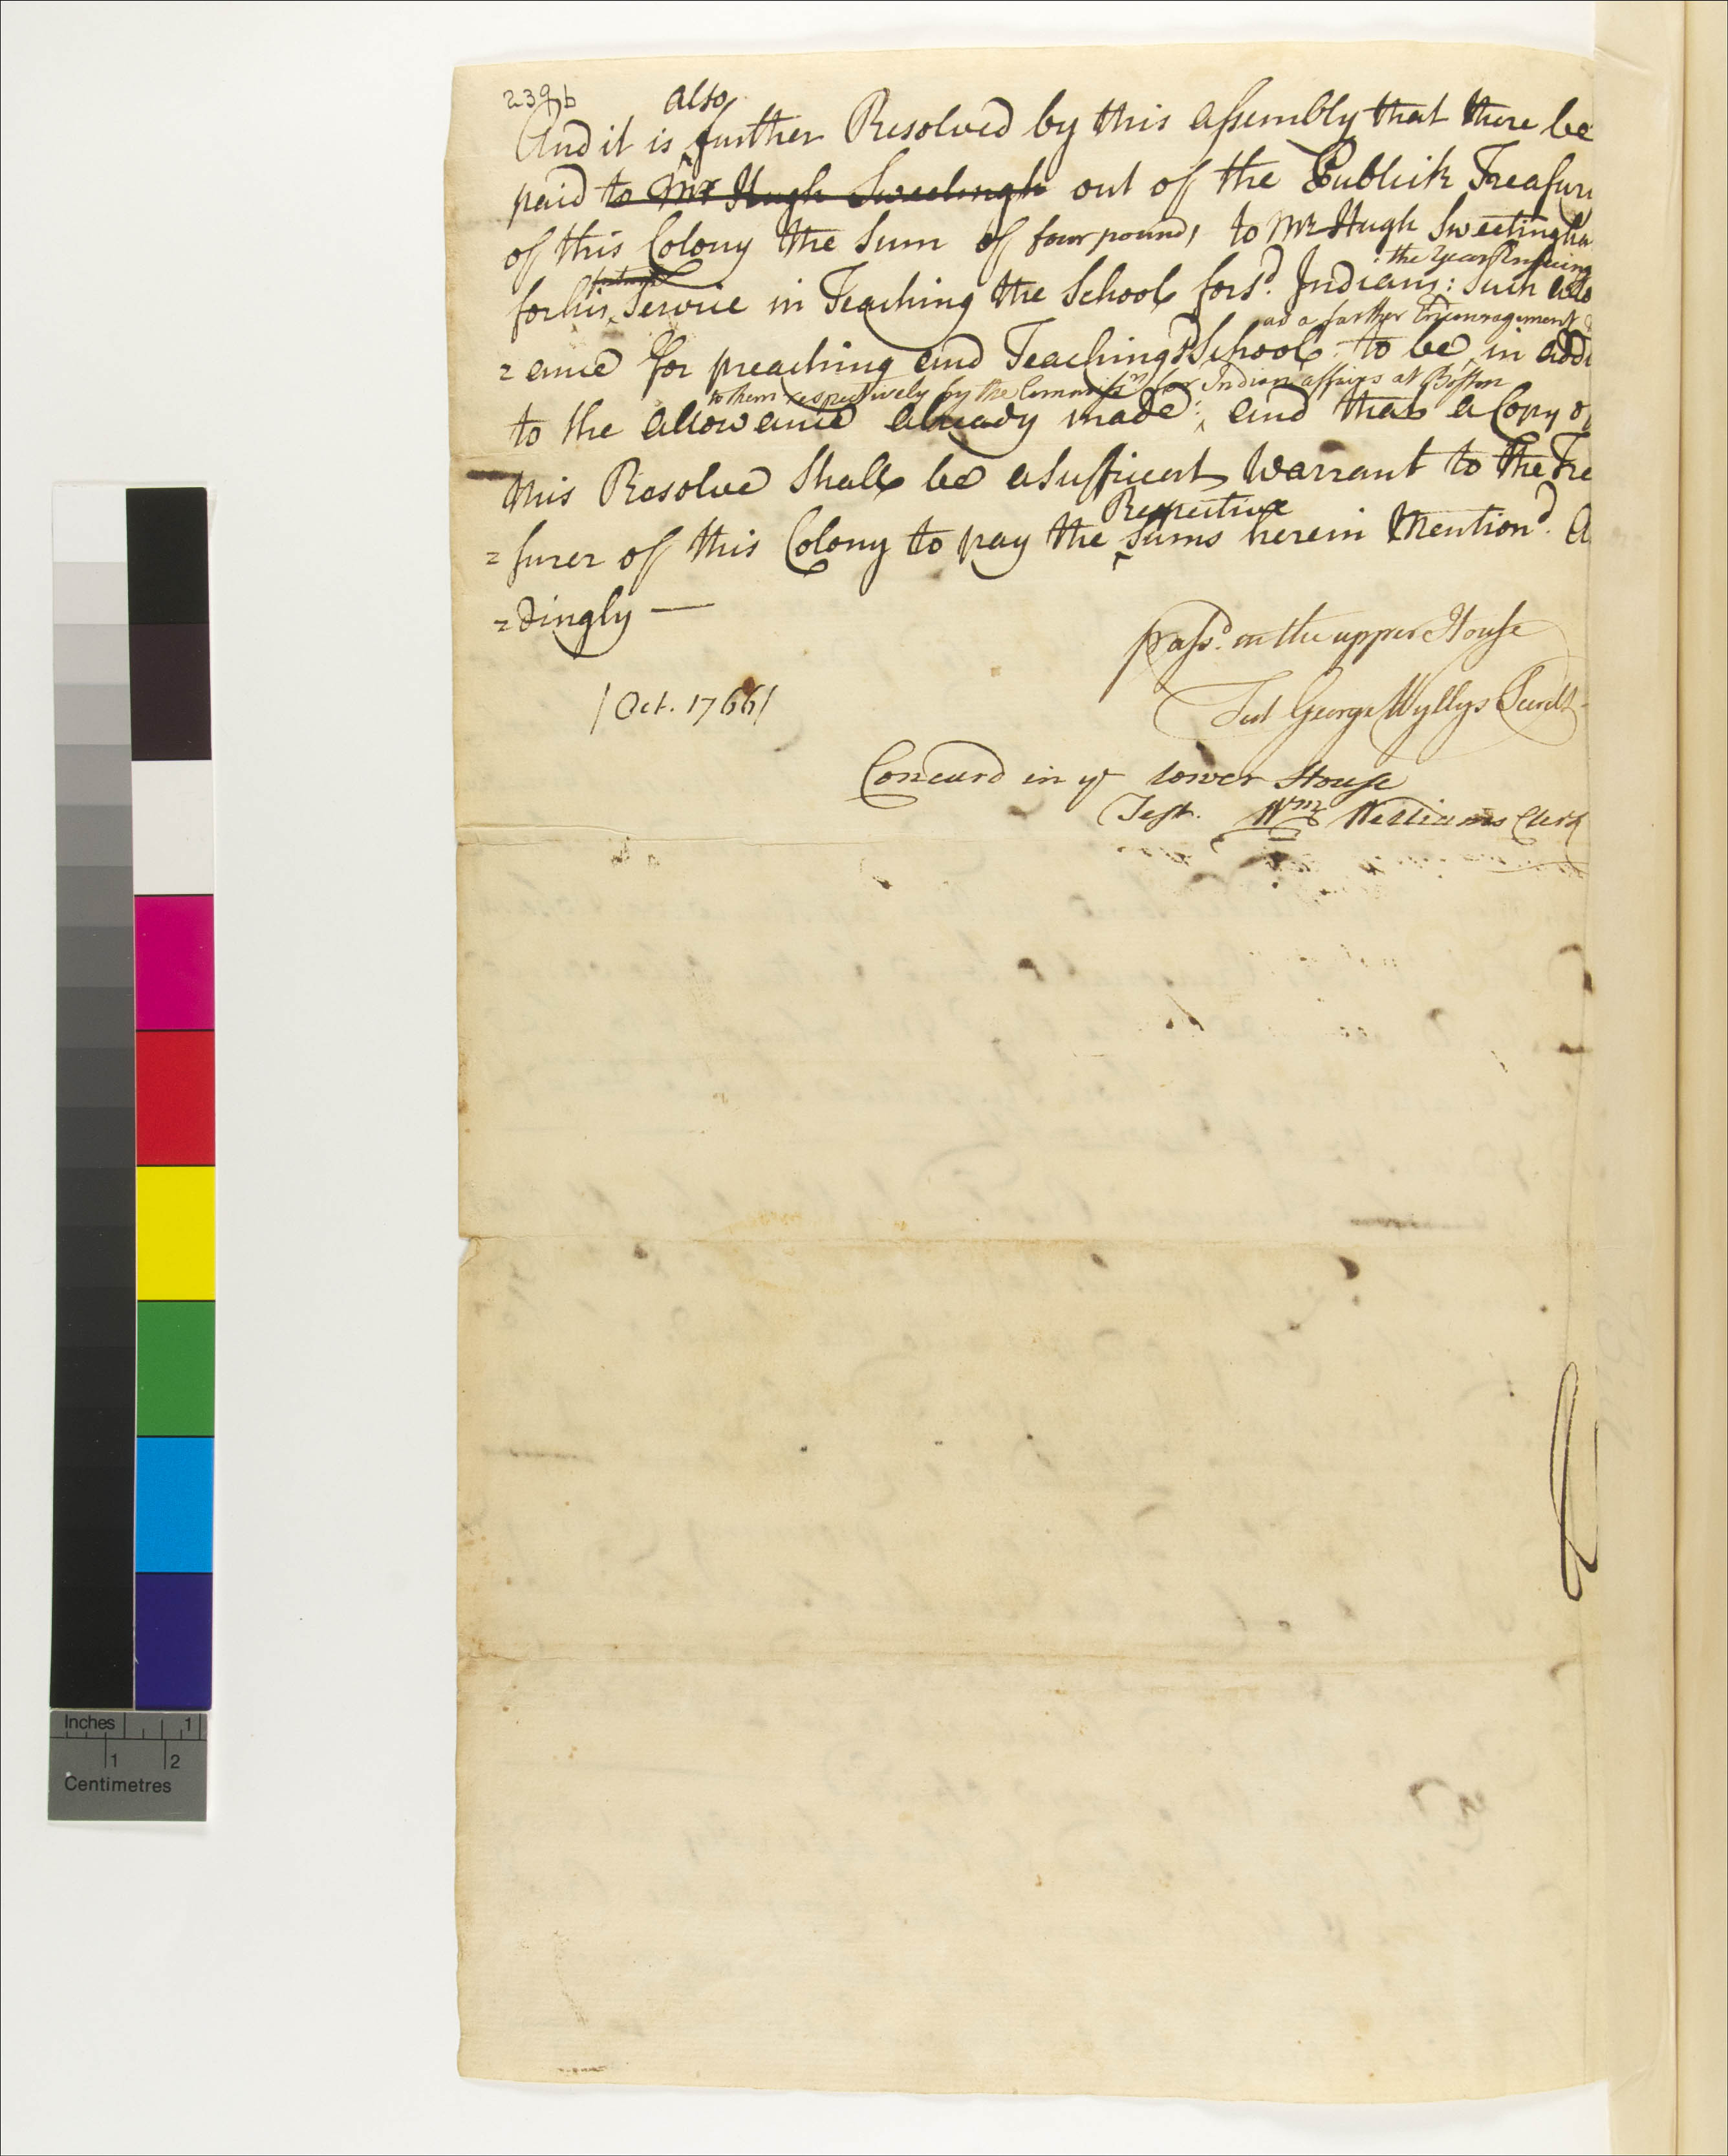 239b
also
And it is further Resolved by this assembly that there be
paid to Mr Hugh Sweetingh out of the Publick Treasur
of this Colony the Sum of four pounds to Mr Hugh Sweetingha
: the Year Ensuing
for his Service in Teaching the School for sd. Indians: Such allo
as a farther Encouragement &
=ance for preaching and Teaching sd School to be in addi
to them respectively by the Commissrs for Indian affairs at Boston
to the allowance already made; and that a Copy of
this Resolve Shall be a sufficient Warrant to the Tre
Respective
=surer of this Colony to pay the Sums herein Mentiond. A
=dingly —
passd. in the upper House
/Oct. 1766/
Test George Wyllys Secrety
Concurd in ye lower House
Test. Wm Williams Clerk
Inches 1
1 2
Centimetres